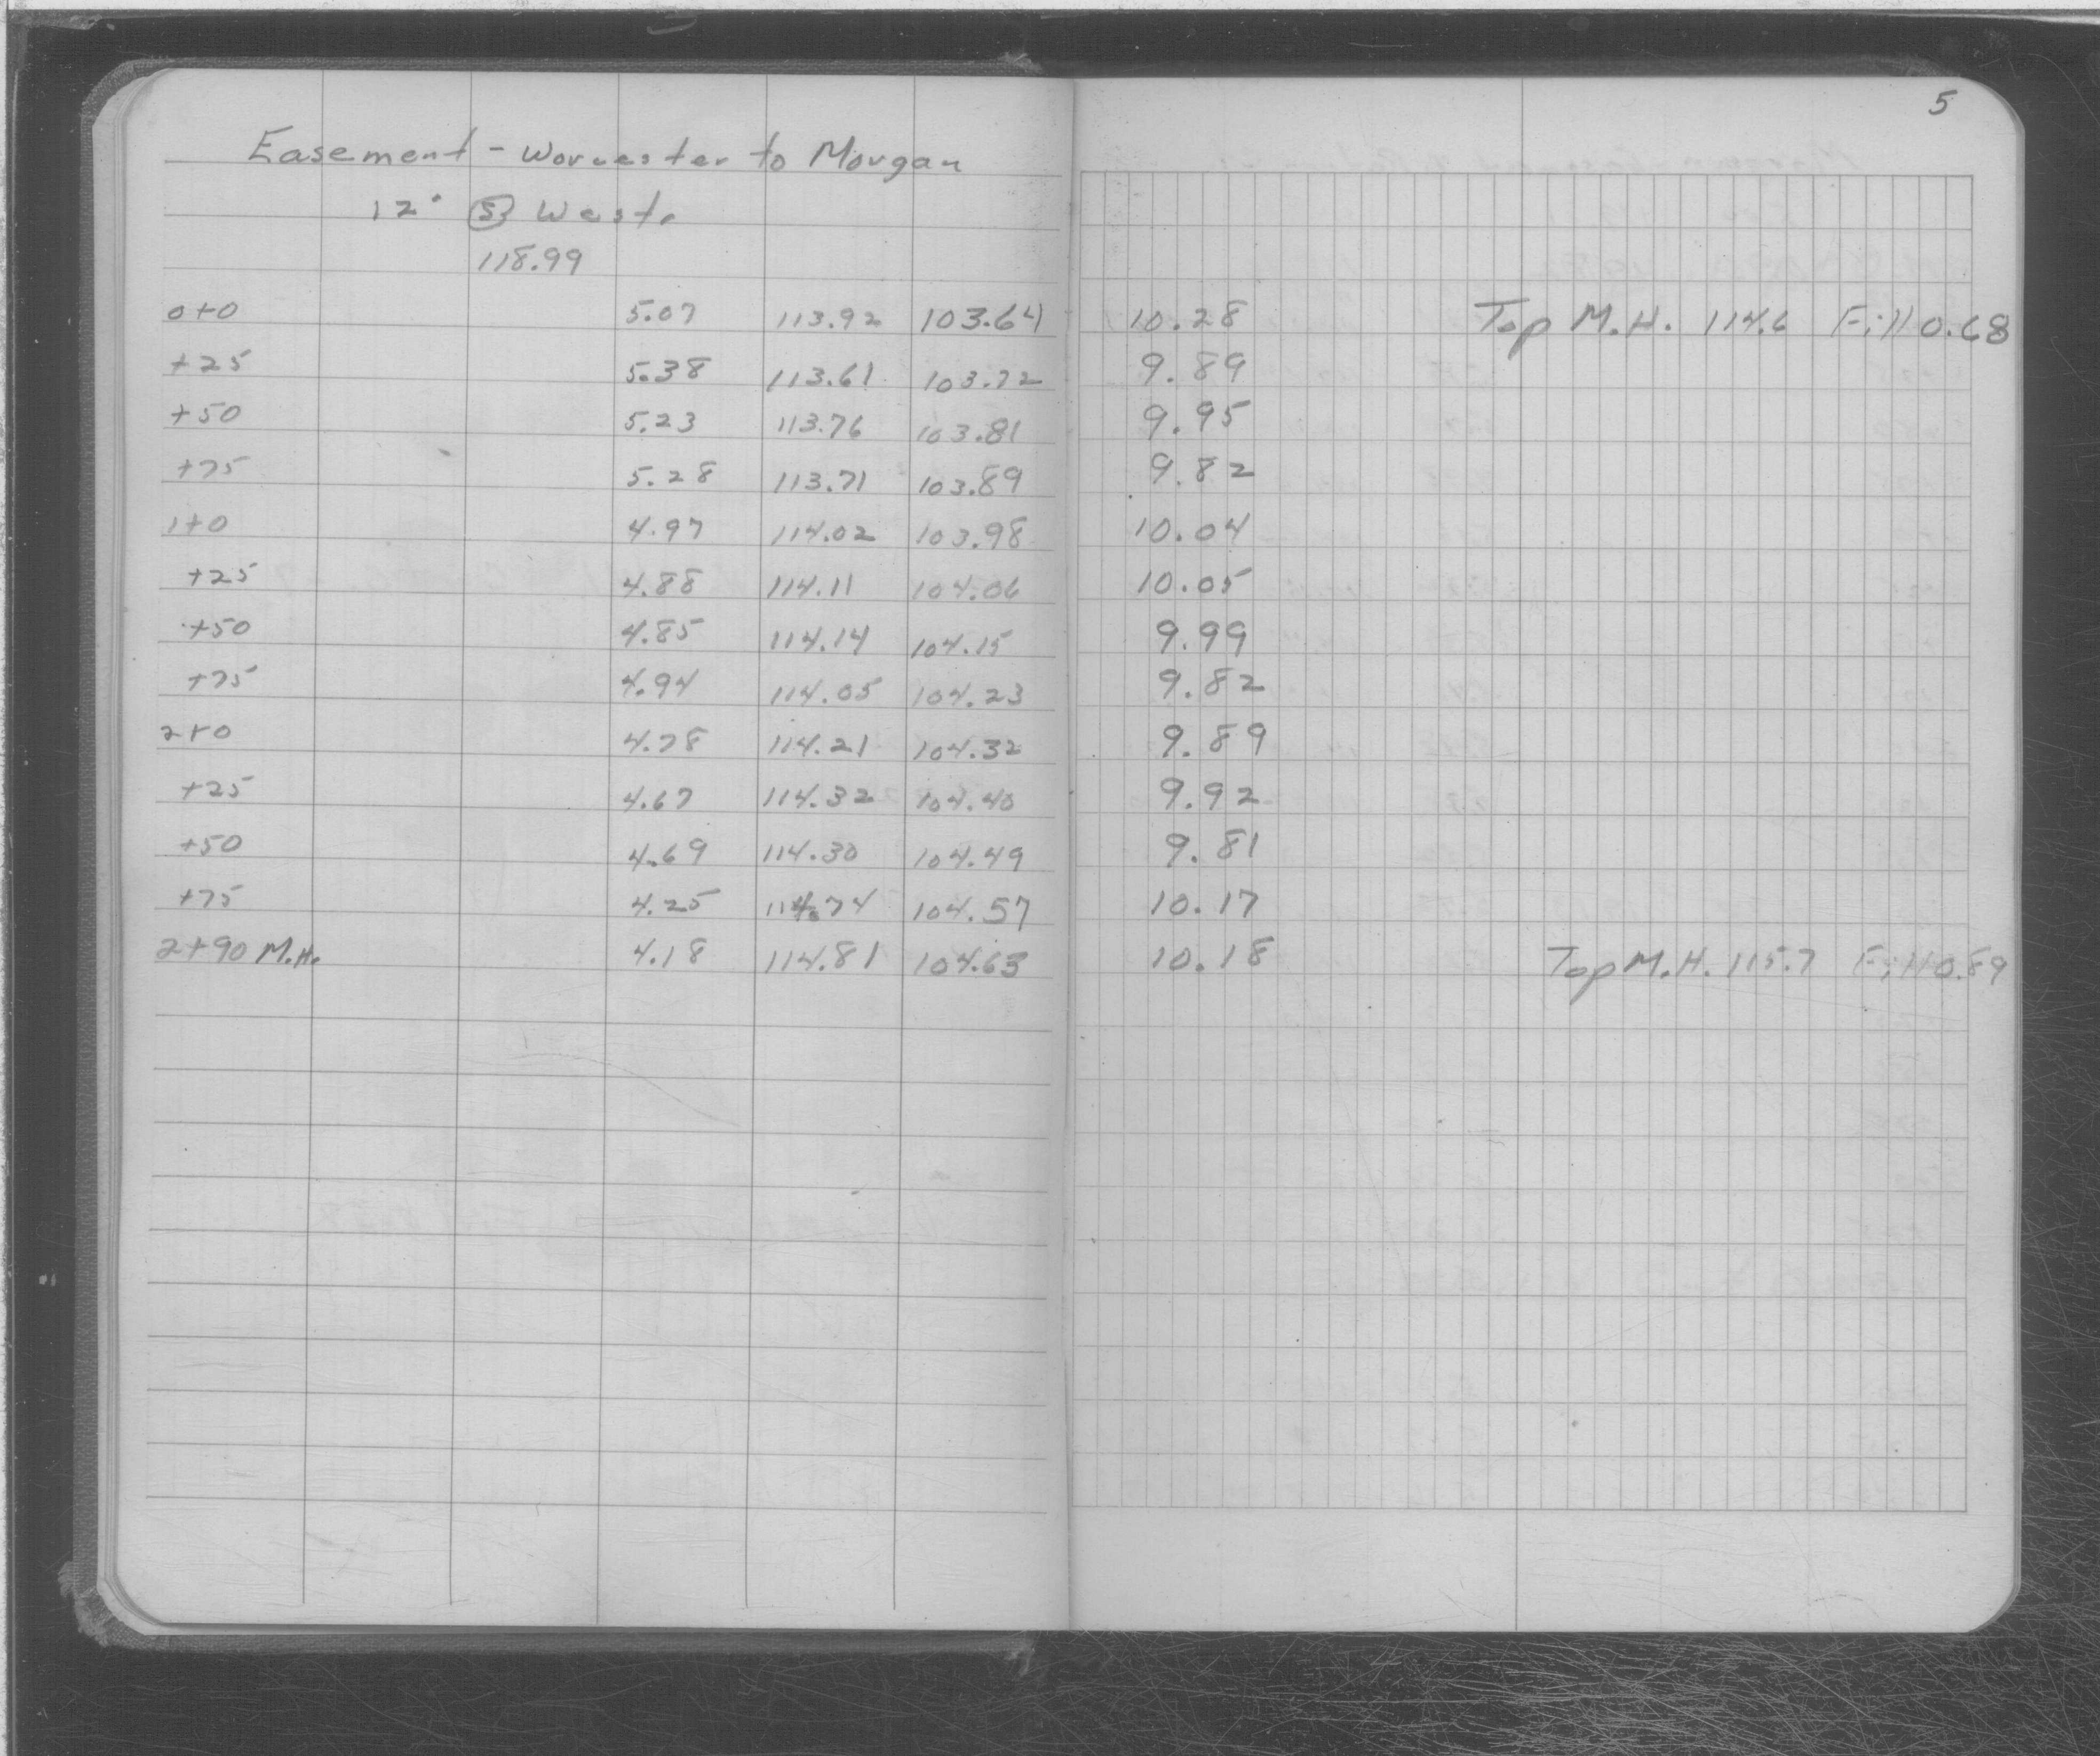 5
Easement - Worcester to Morgan
12" Ⓢ West.
118.99
0+0 5.07 113.92 103.64 10.28 Top M.H. 114.6 Fill 0.68
+25 5.38 113.61 103.72 9.89
+50 5.23 113.76 103.81 9.95
+75 5.28 113.71 103.89 9.82
1+0 4.97 114.02 103.98 10.04
+25 4.88 114.11 104.06 10.05
+50 4.85 114.14 104.15 9.99
+75 4.94 114.05 104.23 9.82
2+0 4.78 114.21 104.32 9.89
+25 4.67 114.32 104.40 9.92
+50 4.69 114.30 104.49 9.81
+75 4.25 114.74 104.57 10.17
2+90 M.H. 4.18 114.81 104.63 10.18 Top M.H. 115.7 Fill 0.89